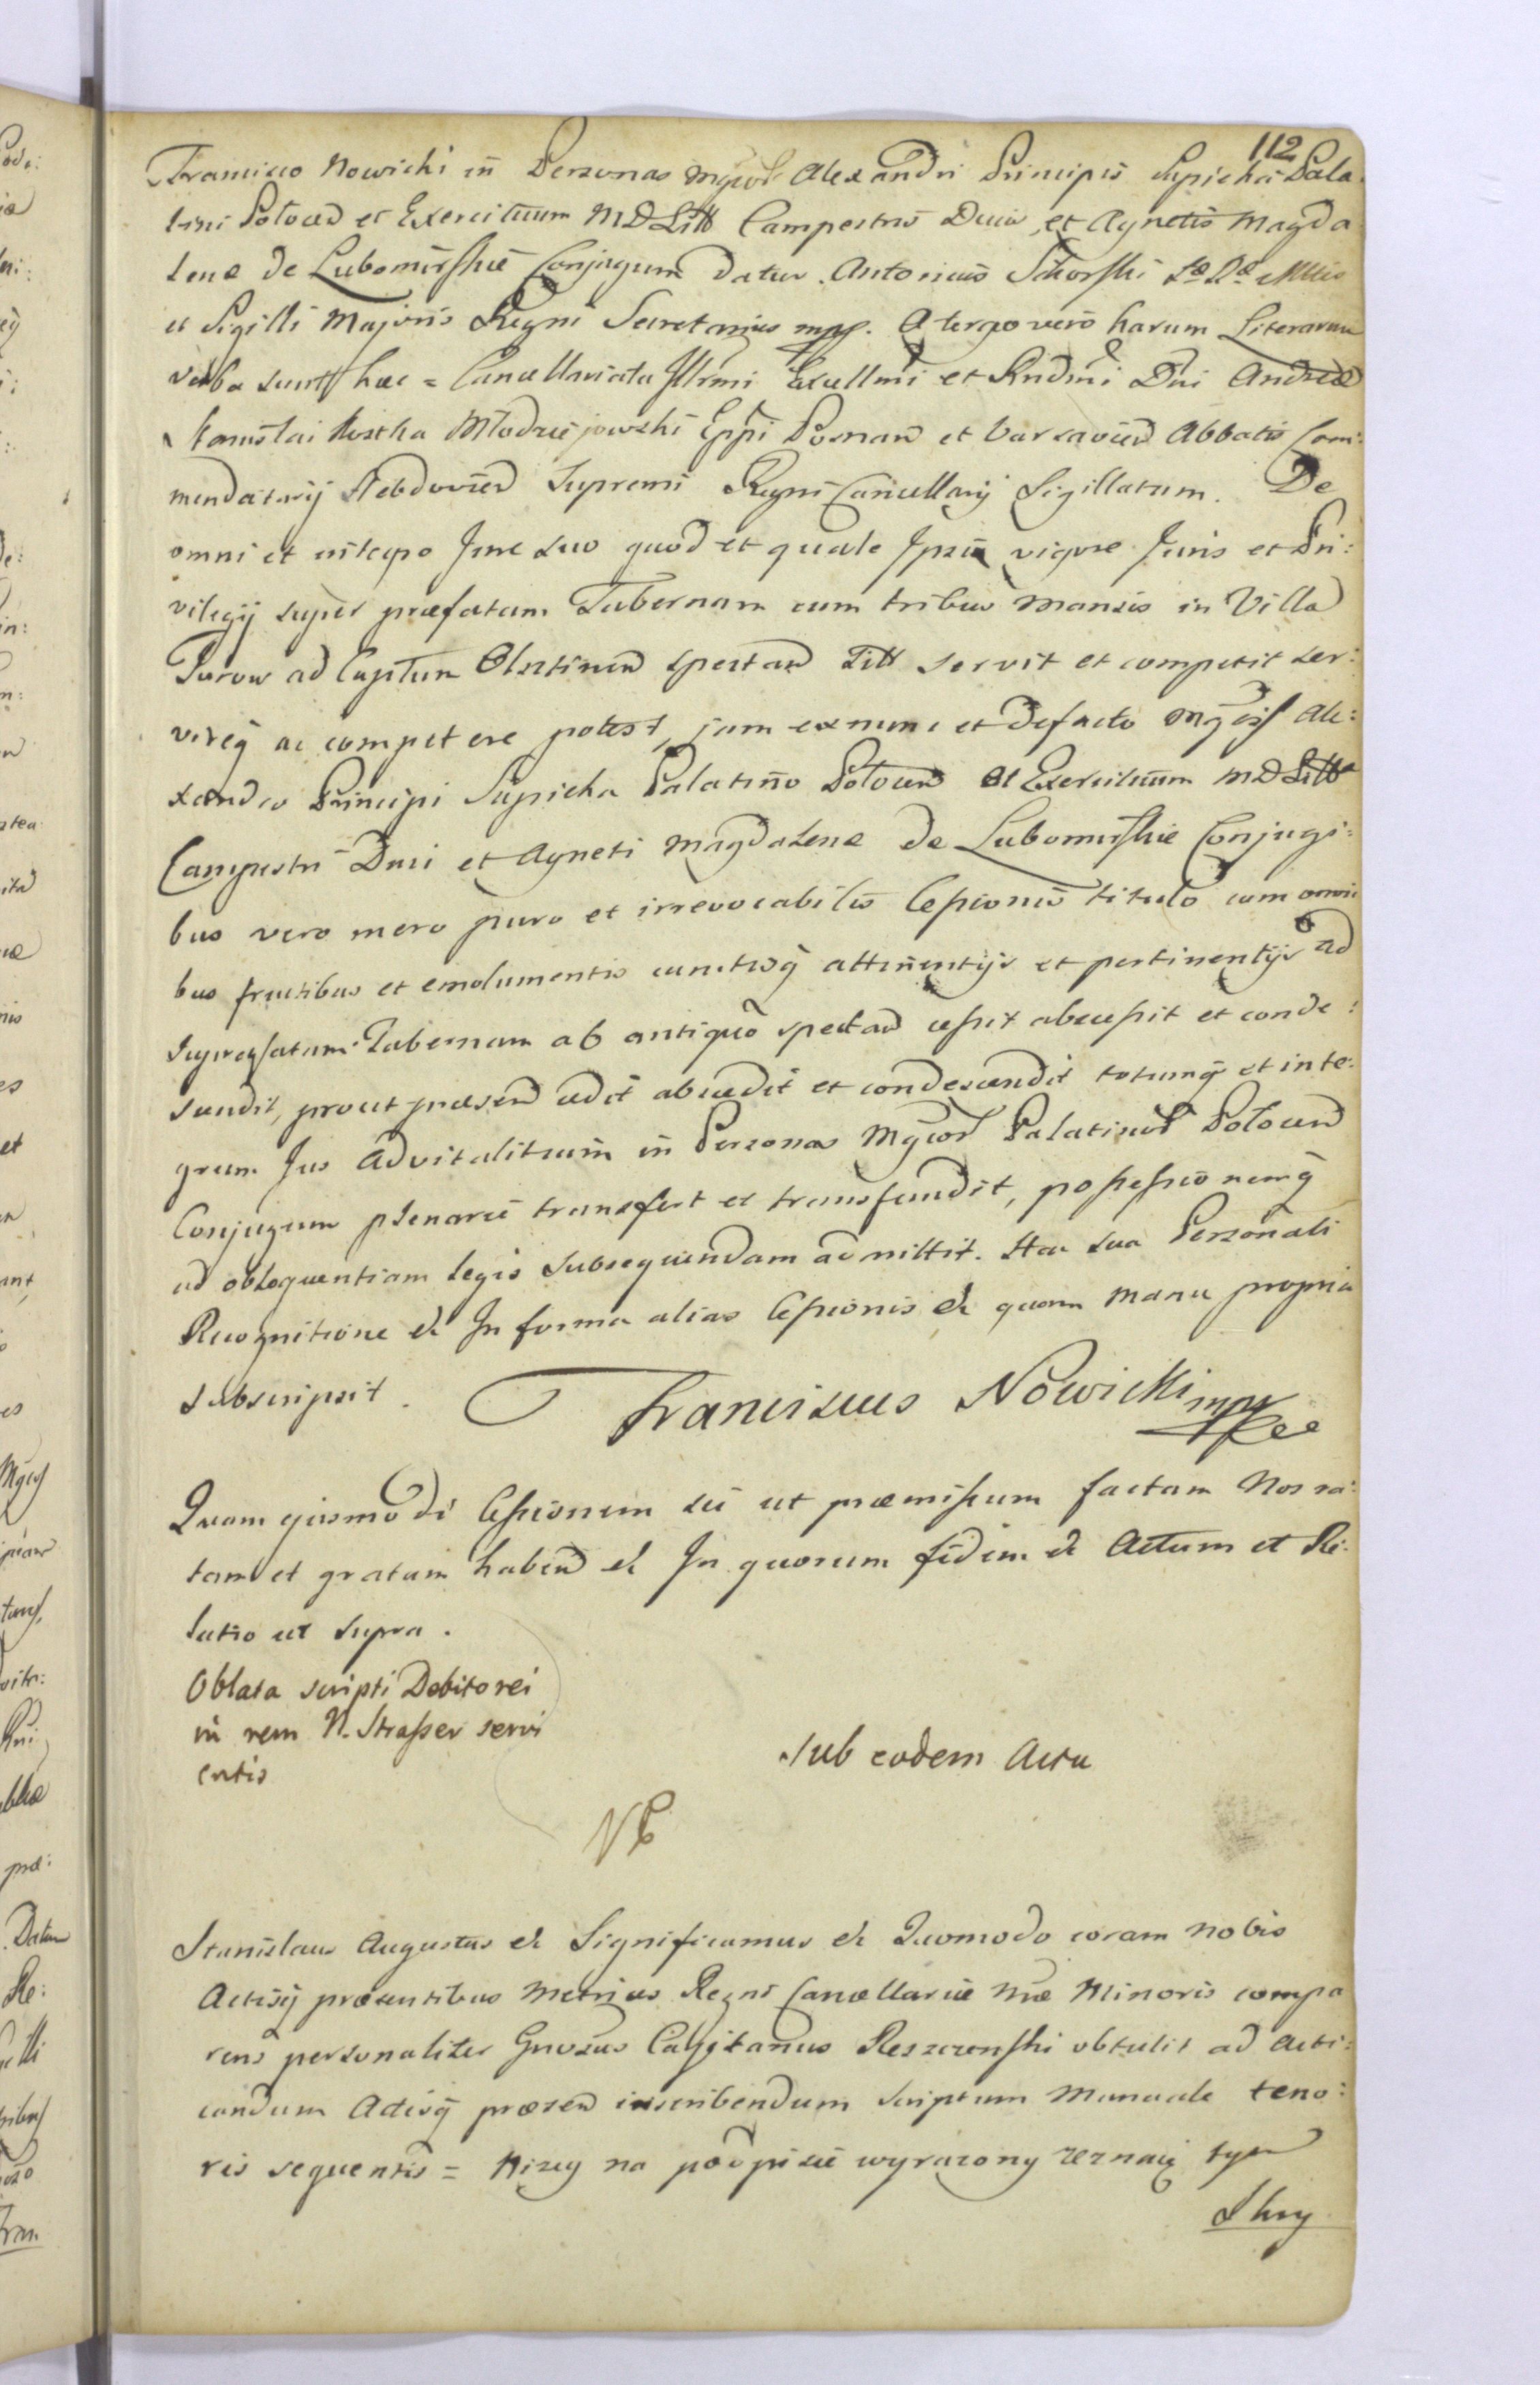 112
Francisco Nowicki in Personas Mgcor Alexandri Principis Sapieha Pala
tini Polocen et Exercituum MDLitt Campestris Ducis, et Agnetis Magda
lenæ de Lubomirskie Conjugum datur. Antonius Sikorski Sæ Ræ Mttis
et Sigilli Majoris Regni Secretarius mpp. A tergo vero harum Literarum
verba sunt hæc = Cancellariatu Illrmi Excellmi et Rndmi Dni Andreæ
Stanislai Kostka Młodziejowski Eppi Posnan et Varsavien Abbatis Com:
mendatarij Hebdovien Supremi Regni Cancellarij Sigillatum. De
omni et integro Jure suo quod et quale Ipsi vigore Juris et Pri:
vilegij super præfatam Tabernam cum tribus Mansis in Villa
Turow ad Capitum Olsztinen spectan Titt servit et competit ser:
vireq ac competere potest, jam ex nunc et defacto Mgcis Ale:
xandro Principi Sapieha Palatino Polocen et Exercituum MDLitt
Campestri Duci et Agneti Magdalenæ de Lubomirskie Conjugi:
bus vero mero puro et irrevocabilis Cessionis titulo cum omni
bus fructibus et emolumentis cunctisq attinentijs et pertinentijs ad
supra Tabernam ab antiquo spectan cessit abcessit et conde:
scendit, prout præsen cedit abcedit et condescendit totumq et inte:
grum Jus Advitalitium in Personas Mgcor Palatinor Polocen
Conjugum plenarie transfert et transfundit, possessionemq
ad obloquentiam legis subsequendam admittit. Hac sua Personali
Recognitione &c In forma alias Cessionis &c quam manu propria
subscripsit. Franciscus Nowicki mpp
Quam ejusmodi Cessionem sic ut præmissum factam Nos ra:
tam et gratam haben &c In quorum fidem &c Actum et Re:
latio ut supra.
Oblata scripti Debitorei
in rem N. Strasser servi
entis
sub eodem Actu
NB
Stanislaus Augustus &c Significamus &c Quomodo coram nobis
Actisq præsentibus Metrices Regni Cancellariæ Nræ Minoris compa
rens personaliter Gnosus Capitaneus Reszczenski obtulit ad Acti:
candum Actisq præsen inscribendum scriptum Manuale teno:
ris sequentis = Nizey na podpisie wyrazony zeznaię tym
Skry